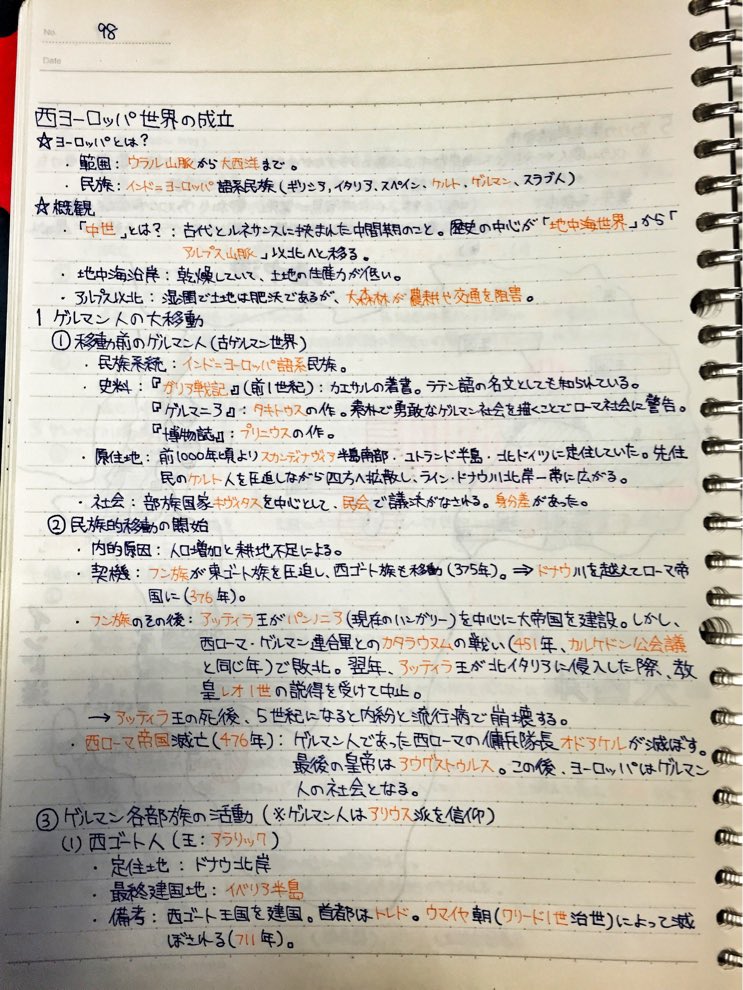 No. 98
Date
西ヨーロッパ世界の成立
☆ヨーロッパとは？
・範囲：ウラル山脈から大西洋まで。
・民族：インド＝ヨーロッパ語系民族（ギリシア、イタリア、スペイン、ケルト、ゲルマン、スラブ人）
☆概観
・「中世」とは？：古代とルネサンスに挟まれた中間期のこと。歴史の中心が「地中海世界」から「
アルプス山脈」以北へと移る。
・地中海沿岸：乾燥していて、土地の生産力が低い。
・アルプス以北：湿潤で土地は肥沃であるが、大森林が農耕や交通を阻害。
1 ゲルマン人の大移動
①移動前のゲルマン人（古ゲルマン世界）
・民族系統：インド＝ヨーロッパ語系民族。
・史料：『ガリア戦記』（前1世紀）：カエサルの著書。ラテン語の名文としても知られている。
『ゲルマニア』：タキトゥスの作。素朴で勇敢なゲルマン社会を描くことでローマ社会に警告。
『博物誌』：プリニウスの作。
・原住地：前1000年頃よりスカンディナヴィア半島南部・ユトランド半島・北ドイツに定住していた。先住
民のケルト人を圧迫しながら四方へ拡散し、ライン・ドナウ川北岸一帯に広がる。
・社会：部族国家キヴィタスを中心として、民会で議決がなされる。身分差があった。
②民族的移動の開始
・内的原因：人口増加と耕地不足による。
・契機：フン族が東ゴート族を圧迫し、西ゴート族も移動（375年）。⇒ドナウ川を越えてローマ帝
国に（376年）。
・フン族のその後：アッティラ王がパンノニア（現在のハンガリー）を中心に大帝国を建設。しかし、
西ローマ・ゲルマン連合軍とのカタラウヌムの戦い（451年、カルケドン公会議
と同じ年）で敗北。翌年、アッティラ王が北イタリアに侵入した際、教
皇レオ1世の説得を受けて中止。
→アッティラ王の死後、5世紀になると内紛と流行病で崩壊する。
・西ローマ帝国滅亡（476年）：ゲルマン人であった西ローマの傭兵隊長オドアケルが滅ぼす。
最後の皇帝はアウグストゥルス。この後、ヨーロッパはゲルマン
人の社会となる。
③ゲルマン各部族の活動（※ゲルマン人はアリウス派を信仰）
(1)西ゴート人（王：アラリック）
・定住土地：ドナウ北岸
・最終建国地：イベリア半島
・備考：西ゴート王国を建国。首都はトレド。ウマイヤ朝（ワリード1世治世）によって滅
ぼされる（711年）。